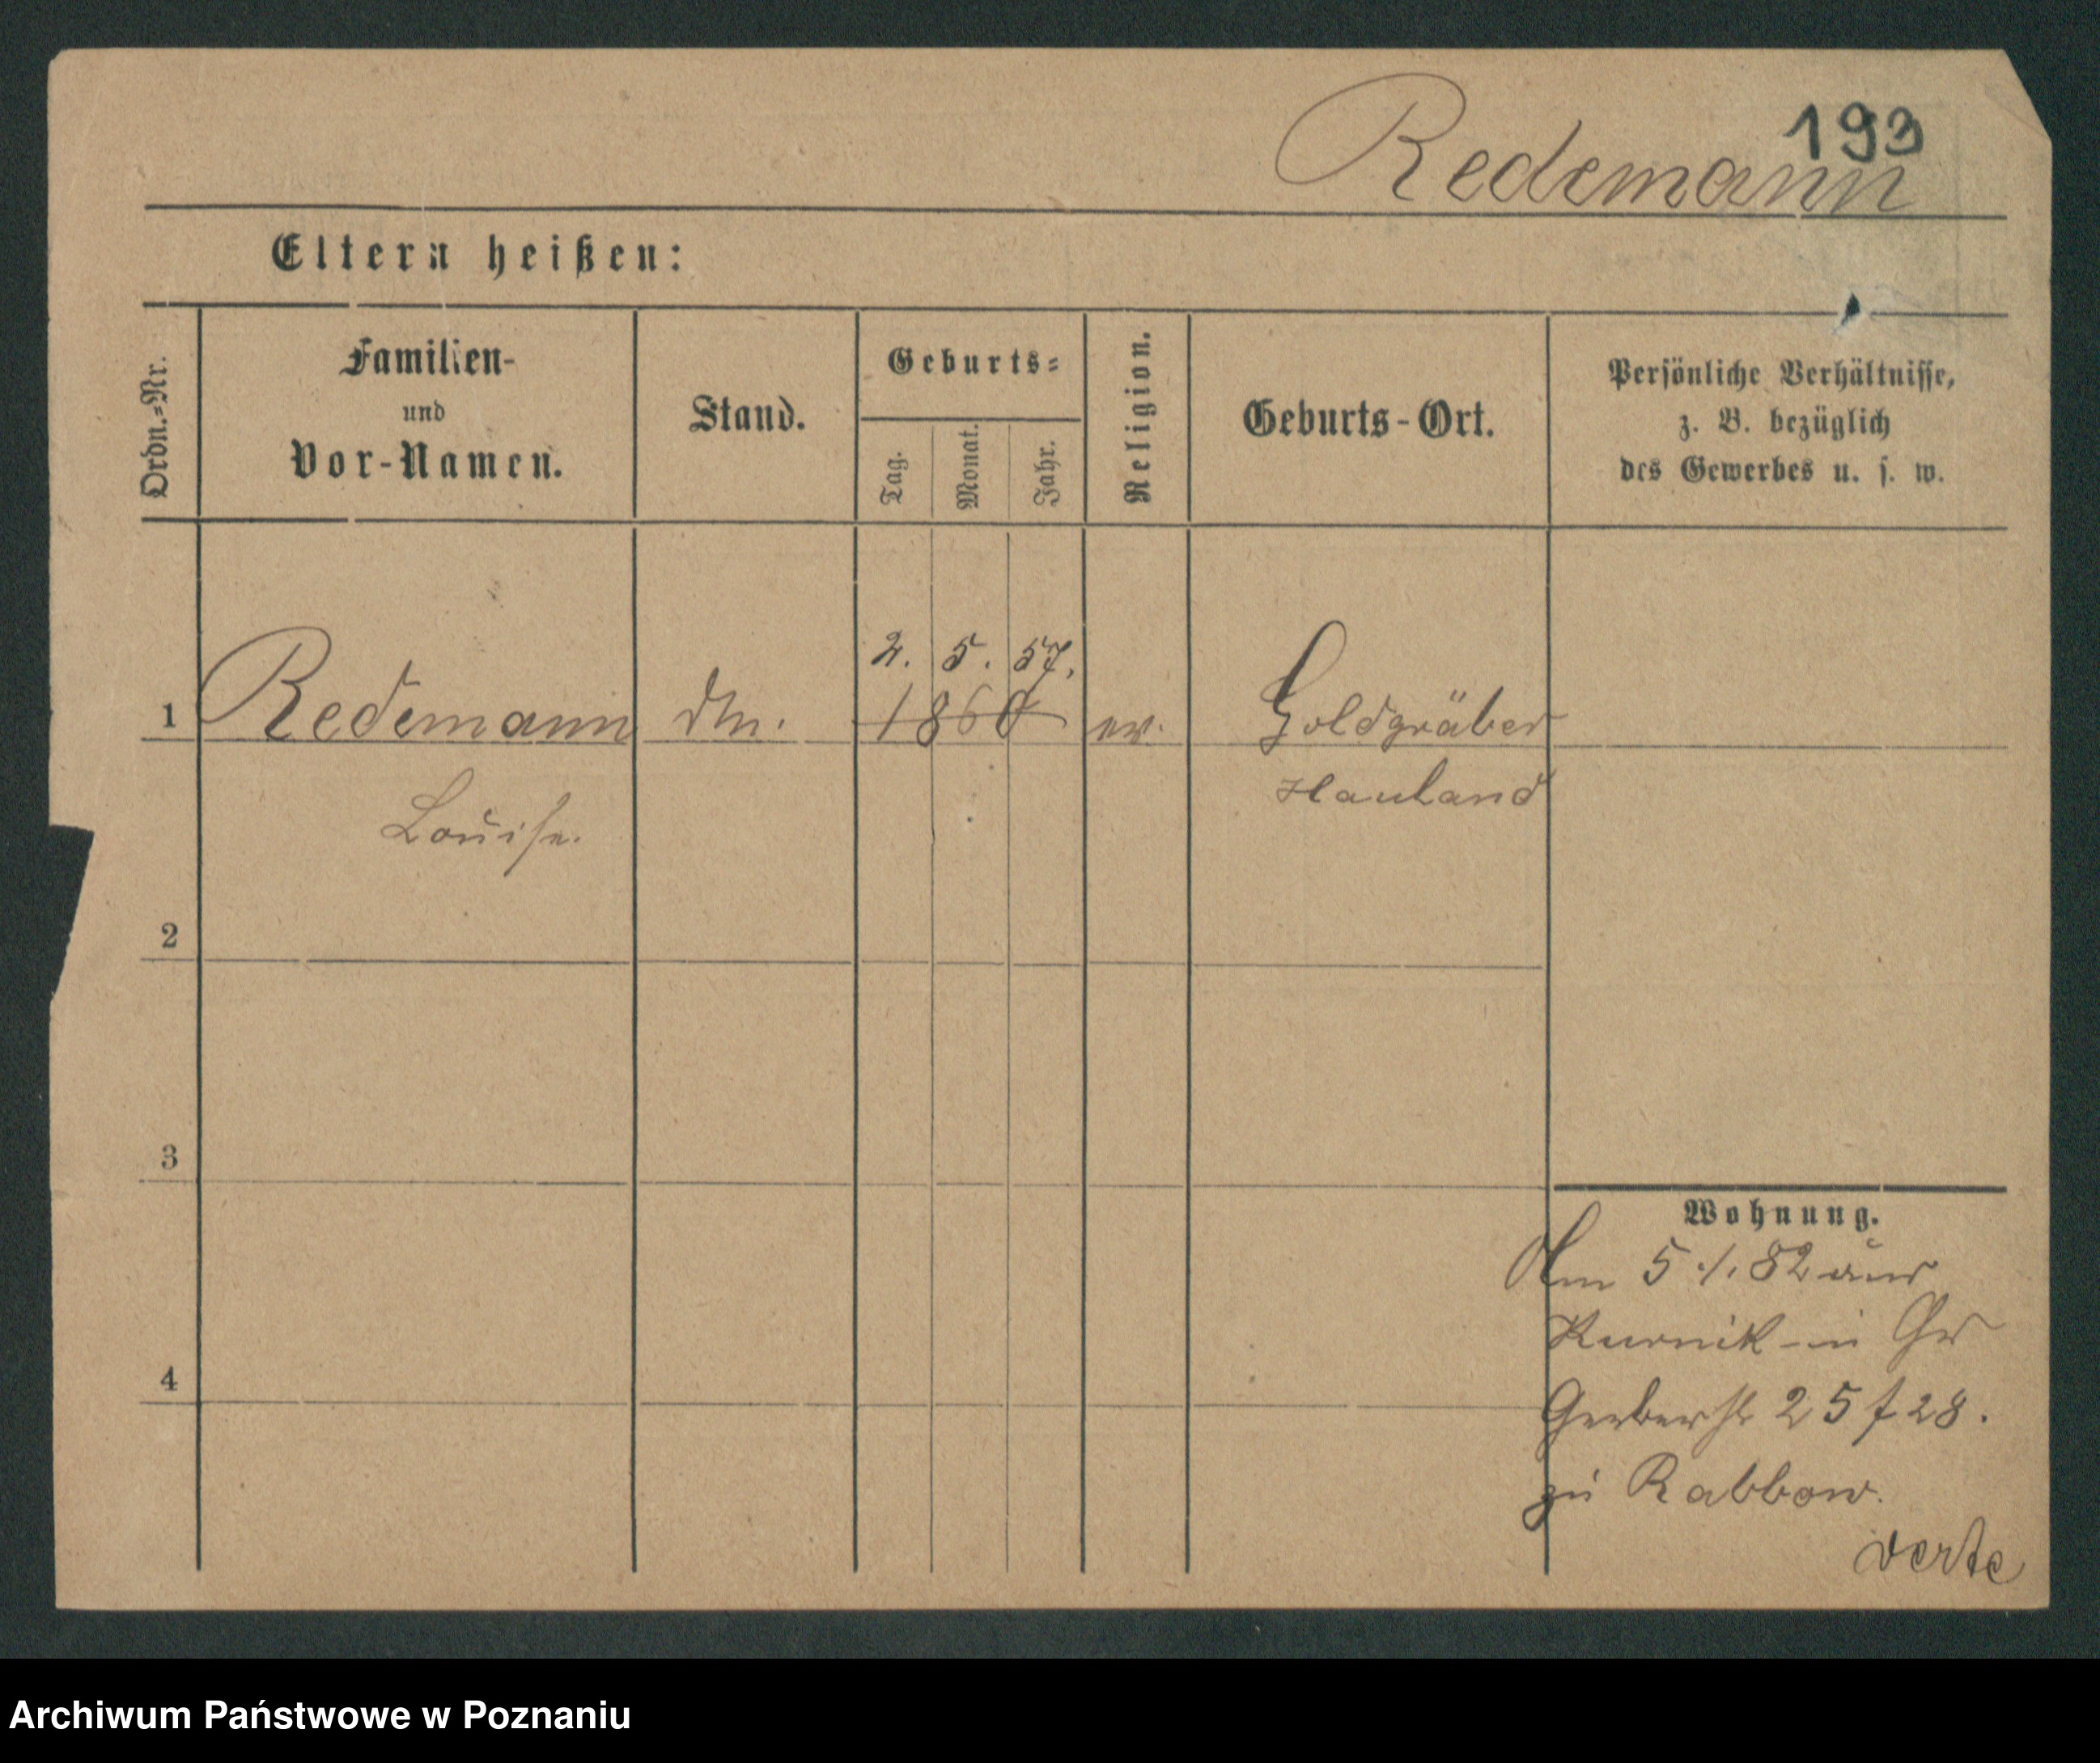 193
Redemann
Eltern heißen:
Ordn.-Nr.
Familien-
und
Vor-Namen.
Stand.
Geburts-
Tag.
Monat.
Jahr.
Religion.
Geburts-Ort.
Persönliche Verhältnisse,
z. B. bezüglich
des Gewerbes u. s. w.
2. 5. 57.
1 Redemann 1860 ev. Goldgräber
Louise. Hauland
2
3
4
Wohnung.
Am 5./. 82 aus
Kurnik in Gr
Gerberstr 25 f 28.
zu Rabbow.
verte
Archiwum Państwowe w Poznaniu